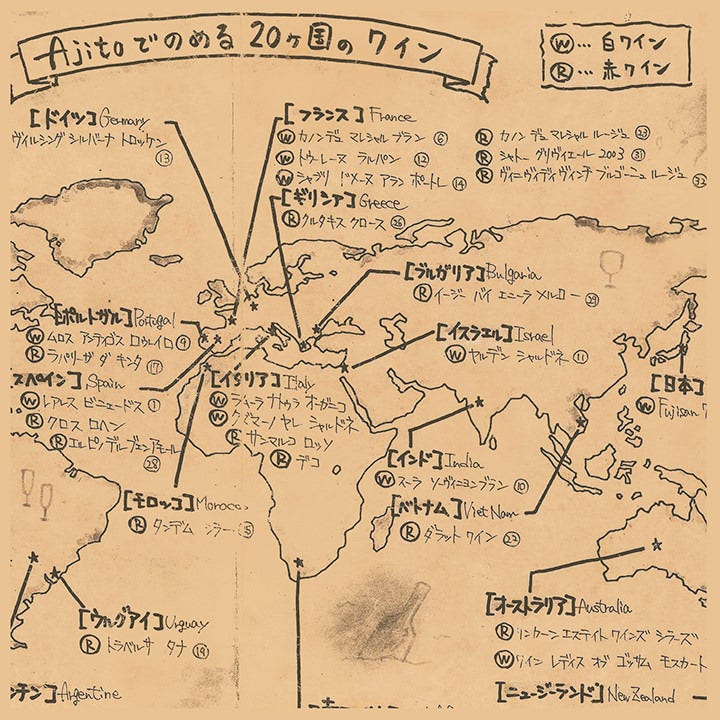 Ajitoでのめる 20ヶ国の ワイン
W... 白ワイン
R... 赤ワイン
[ドイツ] Germany
ヴィルシング シルバーナ トロッケン
13
[フランス] France
W カノン デュ マレシャル ブラン 6
W トゥーレーヌ ラルパン 12
W シャブリ ドメーヌ アラン ポートレ 14
R カノン デュ マレシャル ルージュ 23
R シャトー グリヴィエール 2003 31
R ヴィニ ヴィティ ヴィンチ ブルゴーニュ ルージュ 32
[ギリシア] Greece
R クルタキス クロース 26
[ブルガリア] Bulgaria
R イージー バイ エニーラ メルロー 29
[ポルトガル] Portogal
W ムロス アンティゴス ロウレイロ 9
R ラパリーガ ダ キンタ 17
[イスラエル] Israel
W ヤルデン シャルドネ 11
スペイン] Spain
W レアレス ビニェードス 1
R クロス ロヘン
R エルピノデルヴェンアモール
28
[イタリア] Italy
W
W ヤレ シャルドネ
R サンマルコ ロッソ
R デコ
[日本]
W Fujisan
[インド] India
W スーラ ソーヴィニヨンブラン 10
[モロッコ] Moroco
R タンデム シラー 5
[ベトナム] VietNam
R ダラット ワイン 22
[ウルグアイ] Uruguay
R トラベルサ タナ 19
[オーストラリア] Australia
R リンカーン エステイト ワインズ シラーズ
W ワイン レディス オブ ゴッサム モスカート
ンチン] Argentine
[ニュージーランド] NewZealand